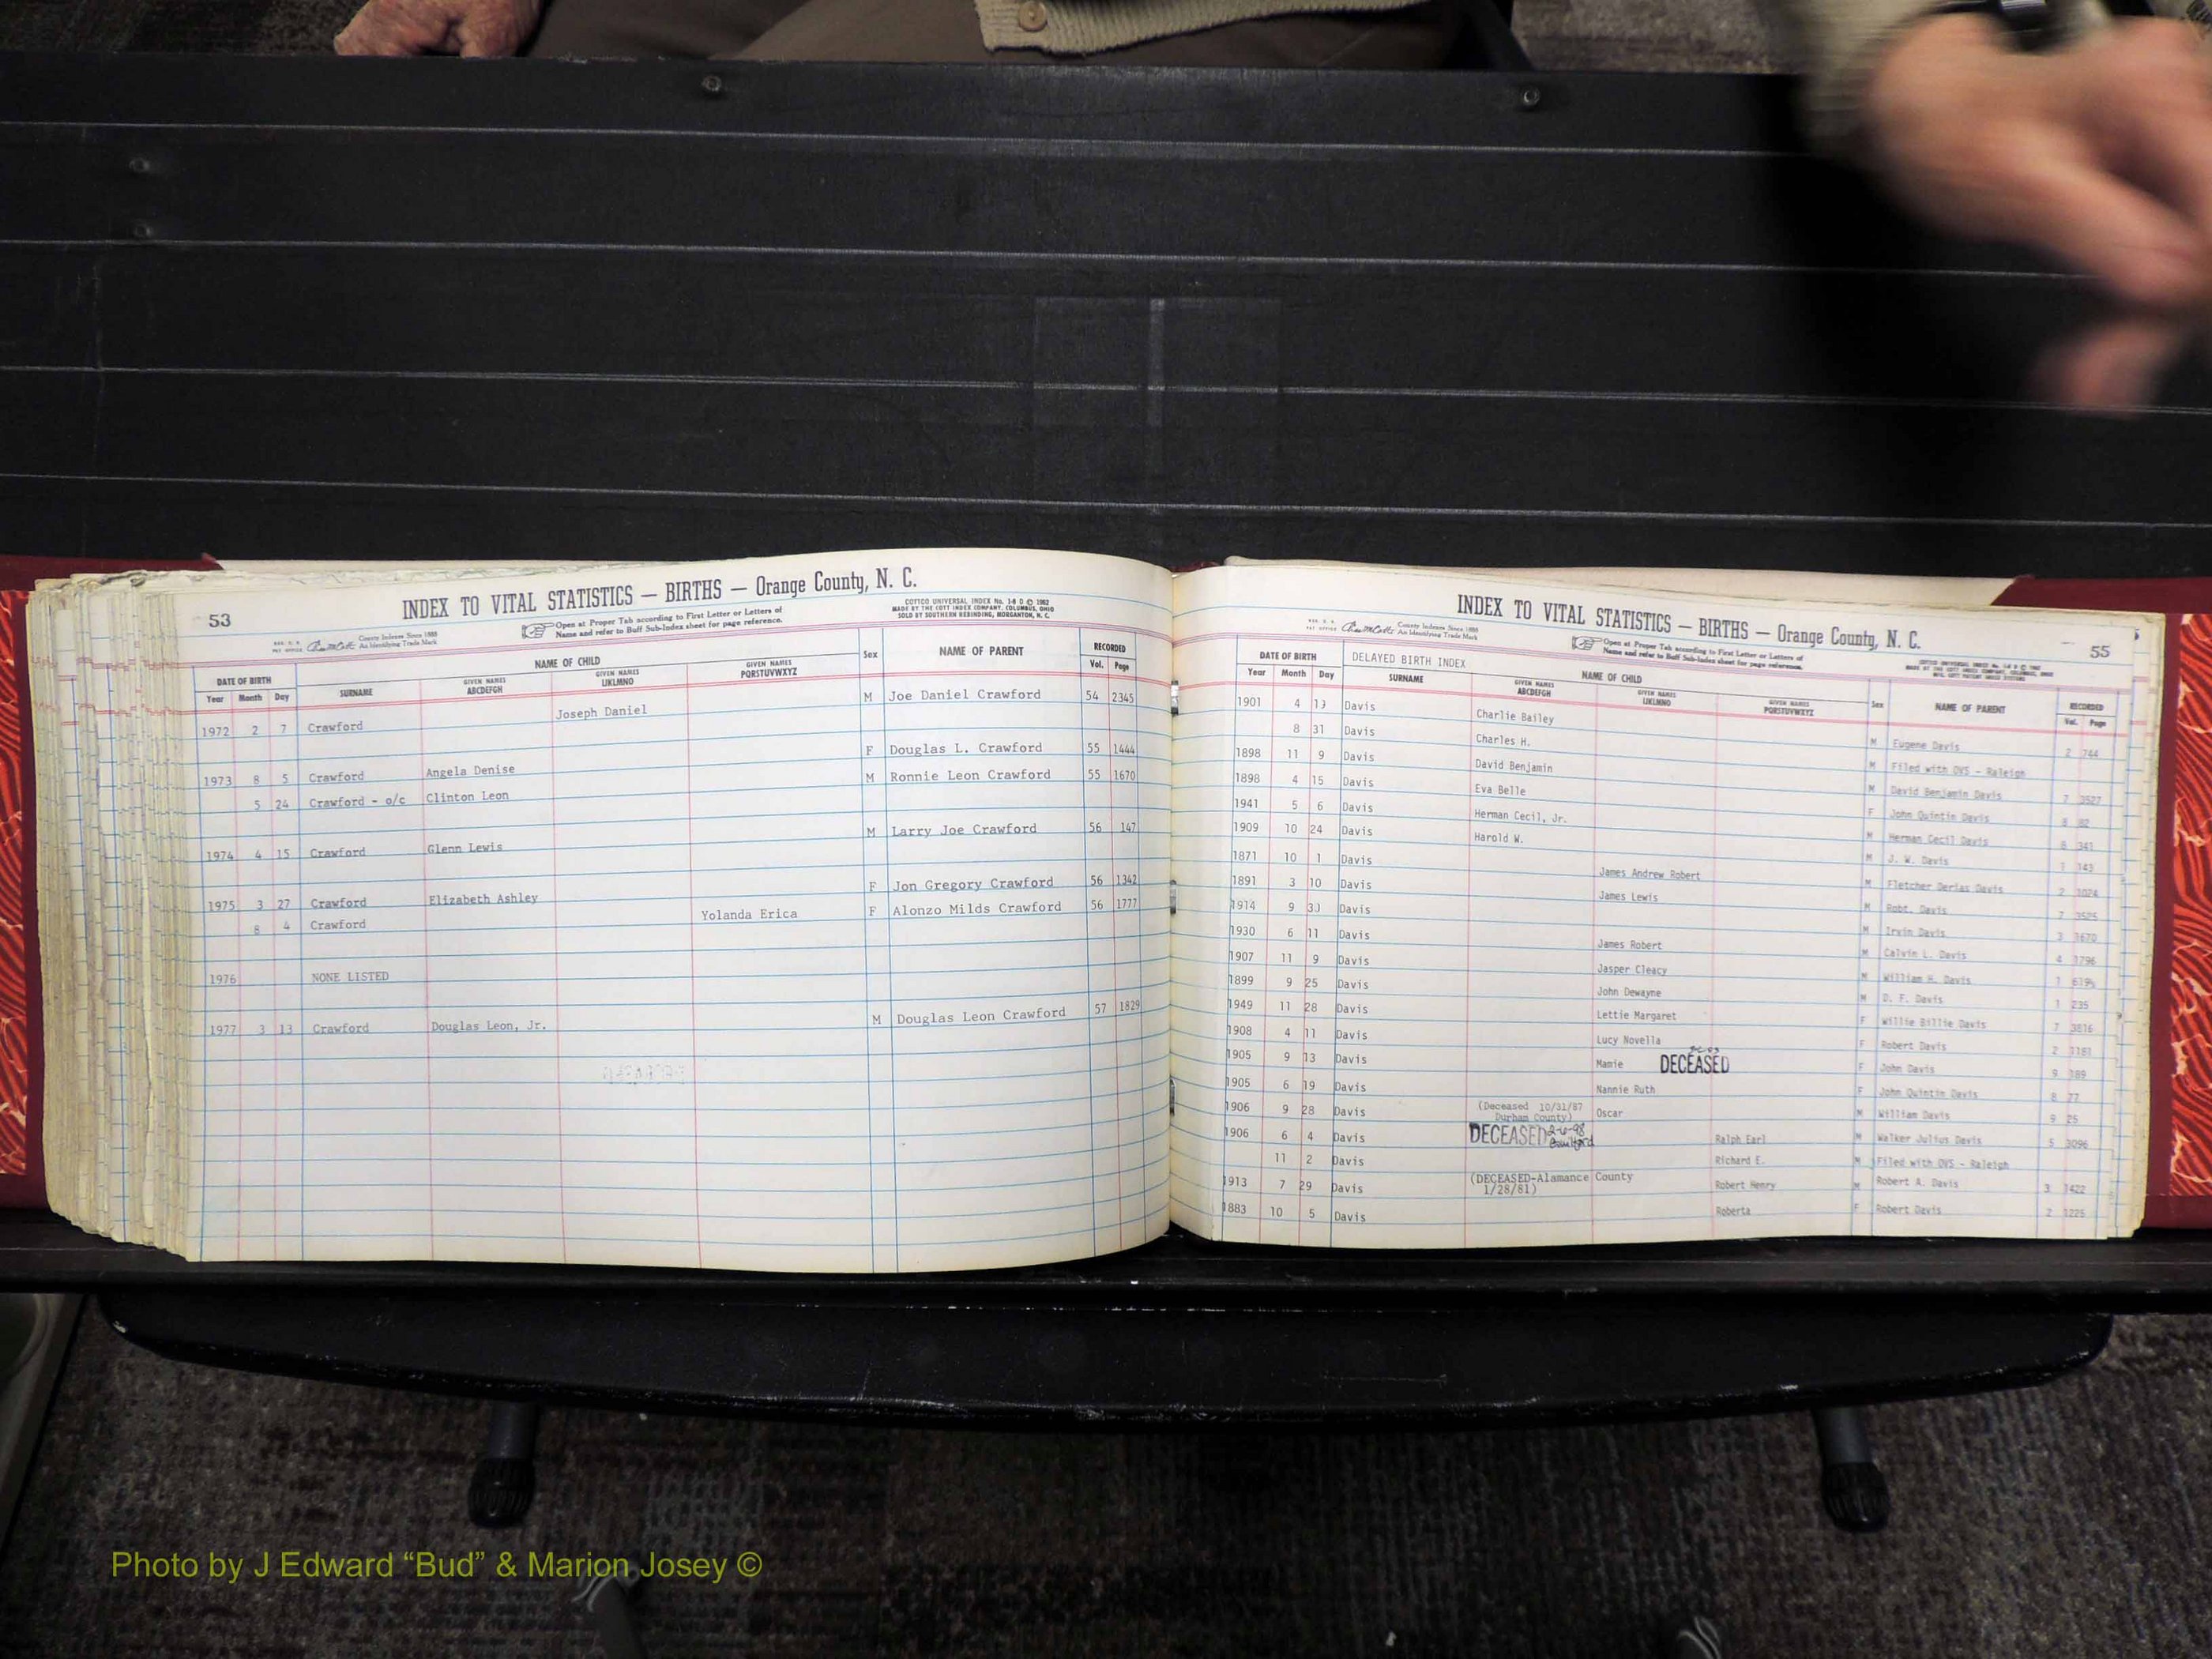 53
INDEX TO VITAL STATISTICS — BIRTHS — Orange County, N. C.
COTTCO UNIVERSAL INDEX No. 1-8 D © 1962
MADE BY THE COTT INDEX COMPANY, COLUMBUS, OHIO
SOLD BY SOUTHERN REBINDING, MORGANTON, N. C.
County Indexes Since 1888
An Identifying Trade Mark
Open at Proper Tab according to First Letter or Letters of
Name and refer to Buff Sub-Index sheet for page reference.
DATE OF BIRTH NAME OF CHILD Sex NAME OF PARENT RECORDED
Year Month Day SURNAME GIVEN NAMES ABCDEFGH GIVEN NAMES IJKLMNO GIVEN NAMES PQRSTUVWXYZ Vol. Page
1972 2 7 Crawford Joseph Daniel M Joe Daniel Crawford 54 2345
1973 8 5 Crawford Angela Denise F Douglas L. Crawford 55 1444
5 24 Crawford - o/c Clinton Leon M Ronnie Leon Crawford 55 1670
1974 4 15 Crawford Glenn Lewis M Larry Joe Crawford 56 147
1975 3 27 Crawford Elizabeth Ashley F Jon Gregory Crawford 56 1342
8 4 Crawford Yolanda Erica F Alonzo Milds Crawford 56 1777
1976 NONE LISTED
1977 3 13 Crawford Douglas Leon, Jr. M Douglas Leon Crawford 57 1829
INDEX TO VITAL STATISTICS — BIRTHS — Orange County, N. C.
55
County Indexes Since 1888
An Identifying Trade Mark
Open at Proper Tab according to First Letter or Letters of
Name and refer to Buff Sub-Index sheet for page reference.
DATE OF BIRTH DELAYED BIRTH INDEX NAME OF CHILD Sex NAME OF PARENT RECORDED
Year Month Day SURNAME GIVEN NAMES ABCDEFGH GIVEN NAMES IJKLMNO GIVEN NAMES PQRSTUVWXYZ Vol. Page
1901 4 Davis Charlie Bailey M Eugene Davis 2 744
8 31 Davis Charles H. M Filed with OVS - Raleigh
1898 11 9 Davis David Benjamin M David Benjamin Davis 7 3527
1898 4 15 Davis Eva Belle F John Quintin Davis 8 82
1941 5 6 Davis Herman Cecil, Jr. M Herman Cecil Davis 341
1909 10 24 Davis Harold W. M J. W. Davis 1 143
1871 10 1 Davis James Andrew Robert M Fletcher Davis 2 1024
1891 3 10 Davis James Lewis M Robt. Davis 7
1914 9 Davis M Irvin Davis 3 1670
1930 6 11 Davis James Robert M Calvin L. Davis 4 1796
1907 11 9 Davis Jasper Cleacy M William H. Davis 1
1899 9 25 Davis John Dewayne M D. F. Davis 1 235
1949 11 28 Davis Lettie Margaret F Willie Billie Davis 7 3816
1908 4 11 Davis Lucy Novella F Robert Davis 2 1181
1905 9 13 Davis Mamie DECEASED F John Davis 9 189
1905 6 19 Davis Nannie Ruth F John Quintin Davis 8 77
1906 9 28 Davis (Deceased 10/31/87 Durham County) Oscar M William Davis 9 25
1906 6 4 Davis DECEASED 2-6-98 Guilford Ralph Earl M Walker Julius Davis 5 3096
11 2 Davis Richard E. M Filed with OVS - Raleigh
1913 7 29 Davis (DECEASED-Alamance County 1/28/81) Robert Henry M Robert A. Davis 3 1422
1883 10 5 Davis Roberta F Robert Davis 2 1225
Photo by J Edward “Bud” & Marion Josey ©